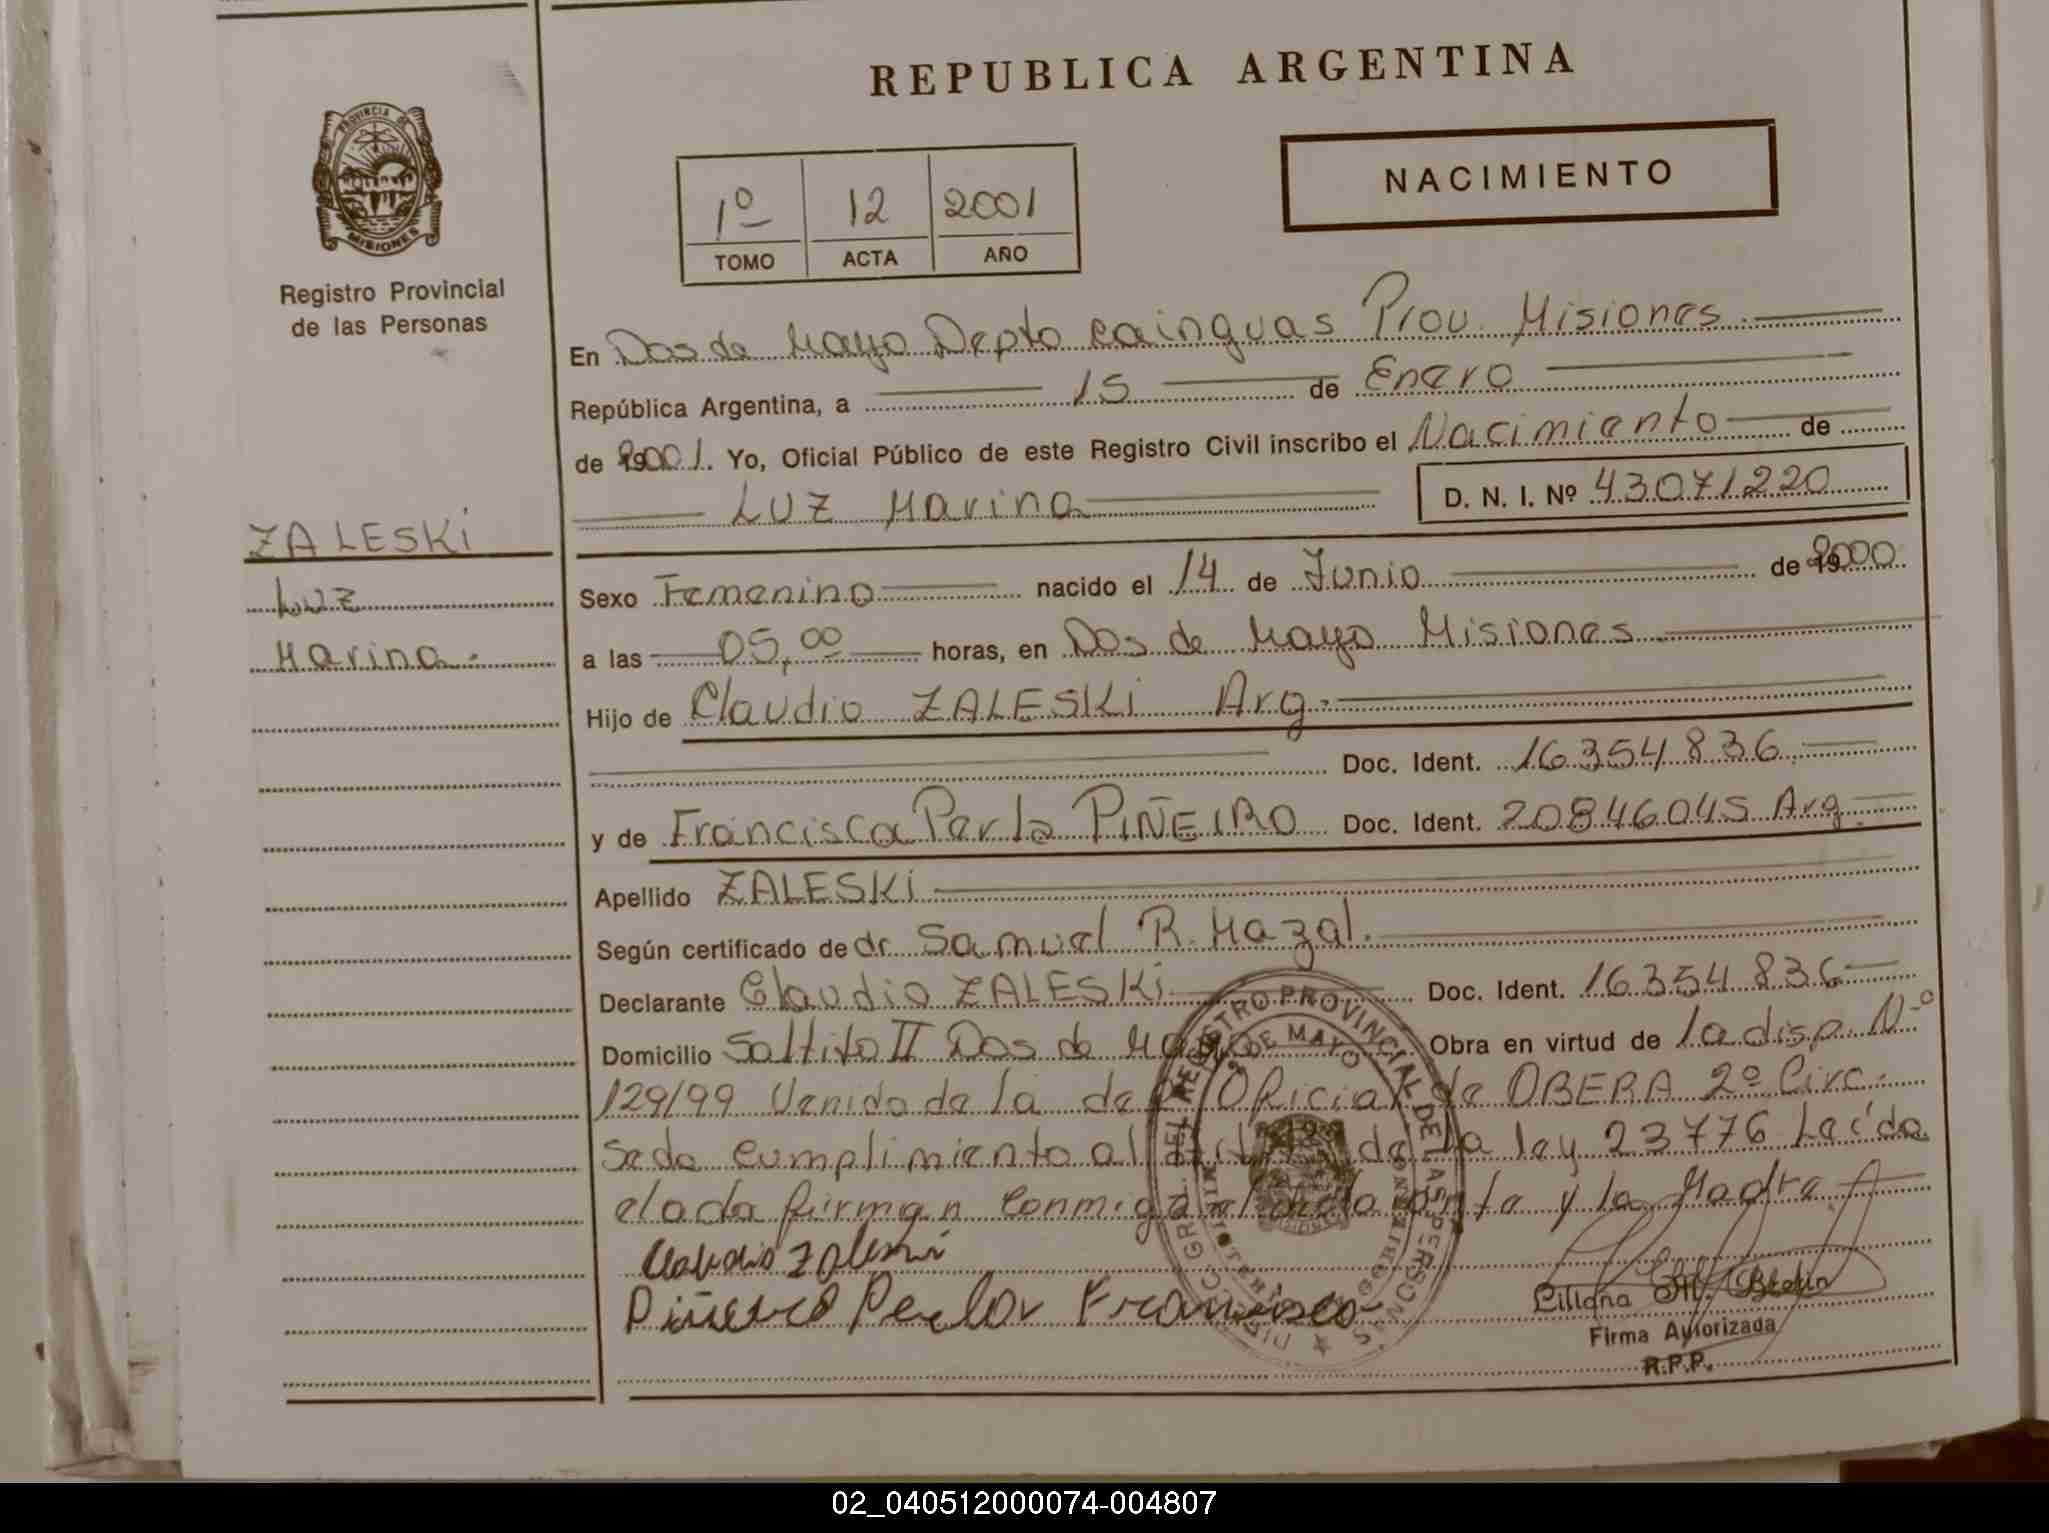 REPUBLICA ARGENTINA
PROVINCIA DE
MISIONES
Registro Provincial
de las Personas
1º 12 2001
TOMO ACTA AÑO
NACIMIENTO
ZALESKI
Luz
Marina.
En Dos de Mayo Depto Cainguas Prov. Misiones.
República Argentina, a 15 de Enero
de 2001. Yo, Oficial Público de este Registro Civil inscribo el Nacimiento de
LUZ Marina D. N. I. Nº 43071220
Sexo Femenino nacido el 14 de Junio de 2000
a las 05,00 horas, en Dos de Mayo Misiones
Hijo de Claudio ZALESKI Arg.
Doc. Ident. 16354836
y de Francisca Perla PIÑEIRO Doc. Ident. 20846045 Arg.
Apellido ZALESKI
Según certificado de dr. Samuel R. Mazal.
Declarante Claudio ZALESKI Doc. Ident. 16354836
Domicilio Saltito II Dos de Mayo Obra en virtud de la disp. Nº
129/99 Venida de la de Oficial de OBERA 2º Circ.
Se da cumplimiento al de la ley 23776 Leída
el acta firman conmigo el declarante y la Madre
Claudio Zaleski
Piñeiro Perla Francisca
Liliana M.
Firma Autorizada
R.P.P.
DIRECC. GRAL. DEL REGISTRO PROVINCIAL DE LAS PERSONAS
2 DE MAYO
02_040512000074-004807